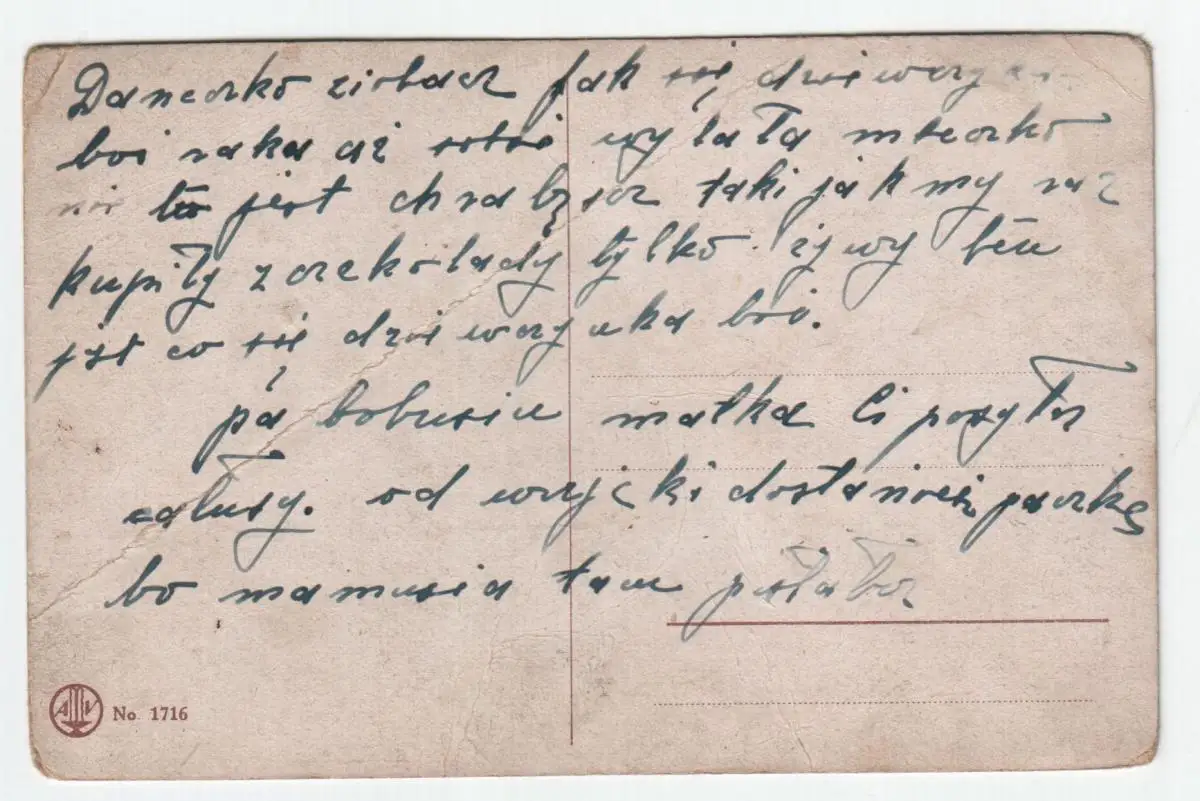 Daneczko ziobacz jak się dziewczyn
boi raka aż sobie wylała mleczko
nie to jest chrabąszcz taki jak my raz
kupiły z czekolady tylko żywy ten
jest co się dziewczynka boi.
pá bobusiu matka Ci posyła
całusy. od wujćki dostaniesz paczkę
bo mamusia tam posłała
AV No. 1716